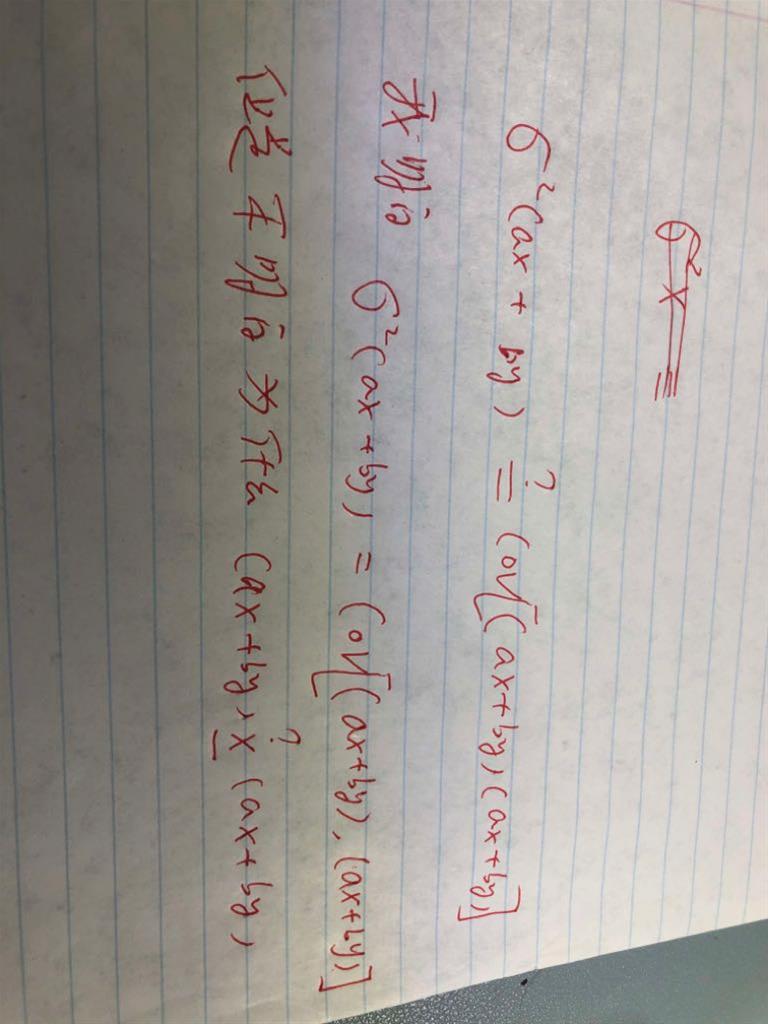 σ²x =
σ²(ax + by) ?= Cov[(ax+by)(ax+by)]
我明白 σ²(ax+by) = Cov[(ax+by), (ax+by)]
但是不明白为什么 (ax+by) ? x (ax+by)